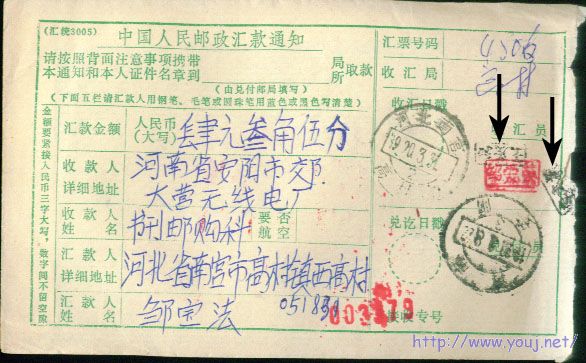 (汇统3005) 中国人民邮政汇款通知
请按照背面注意事项携带
本通知和本人证件名章到 局所 取款
(由兑付邮局填写)
(下面五栏请汇款人用钢笔、毛笔或圆珠笔用蓝色或黑色写清楚)
金额要紧接人民币三字大写,数字间不留空隙
汇款金额 人民币(大写) 肆元叁角伍分
收款人详细地址 河南省安阳市郊
大营无线电厂
收款人姓名 书刊邮购科 要否航空
汇款人详细地址 河北省南宫市高村镇西高村
051831
汇款人姓名 邹宝法
汇票号码
收汇局 高村
收汇日戳
汇员
兑讫日戳
员
003179
接收专号
http://www.youj.net/